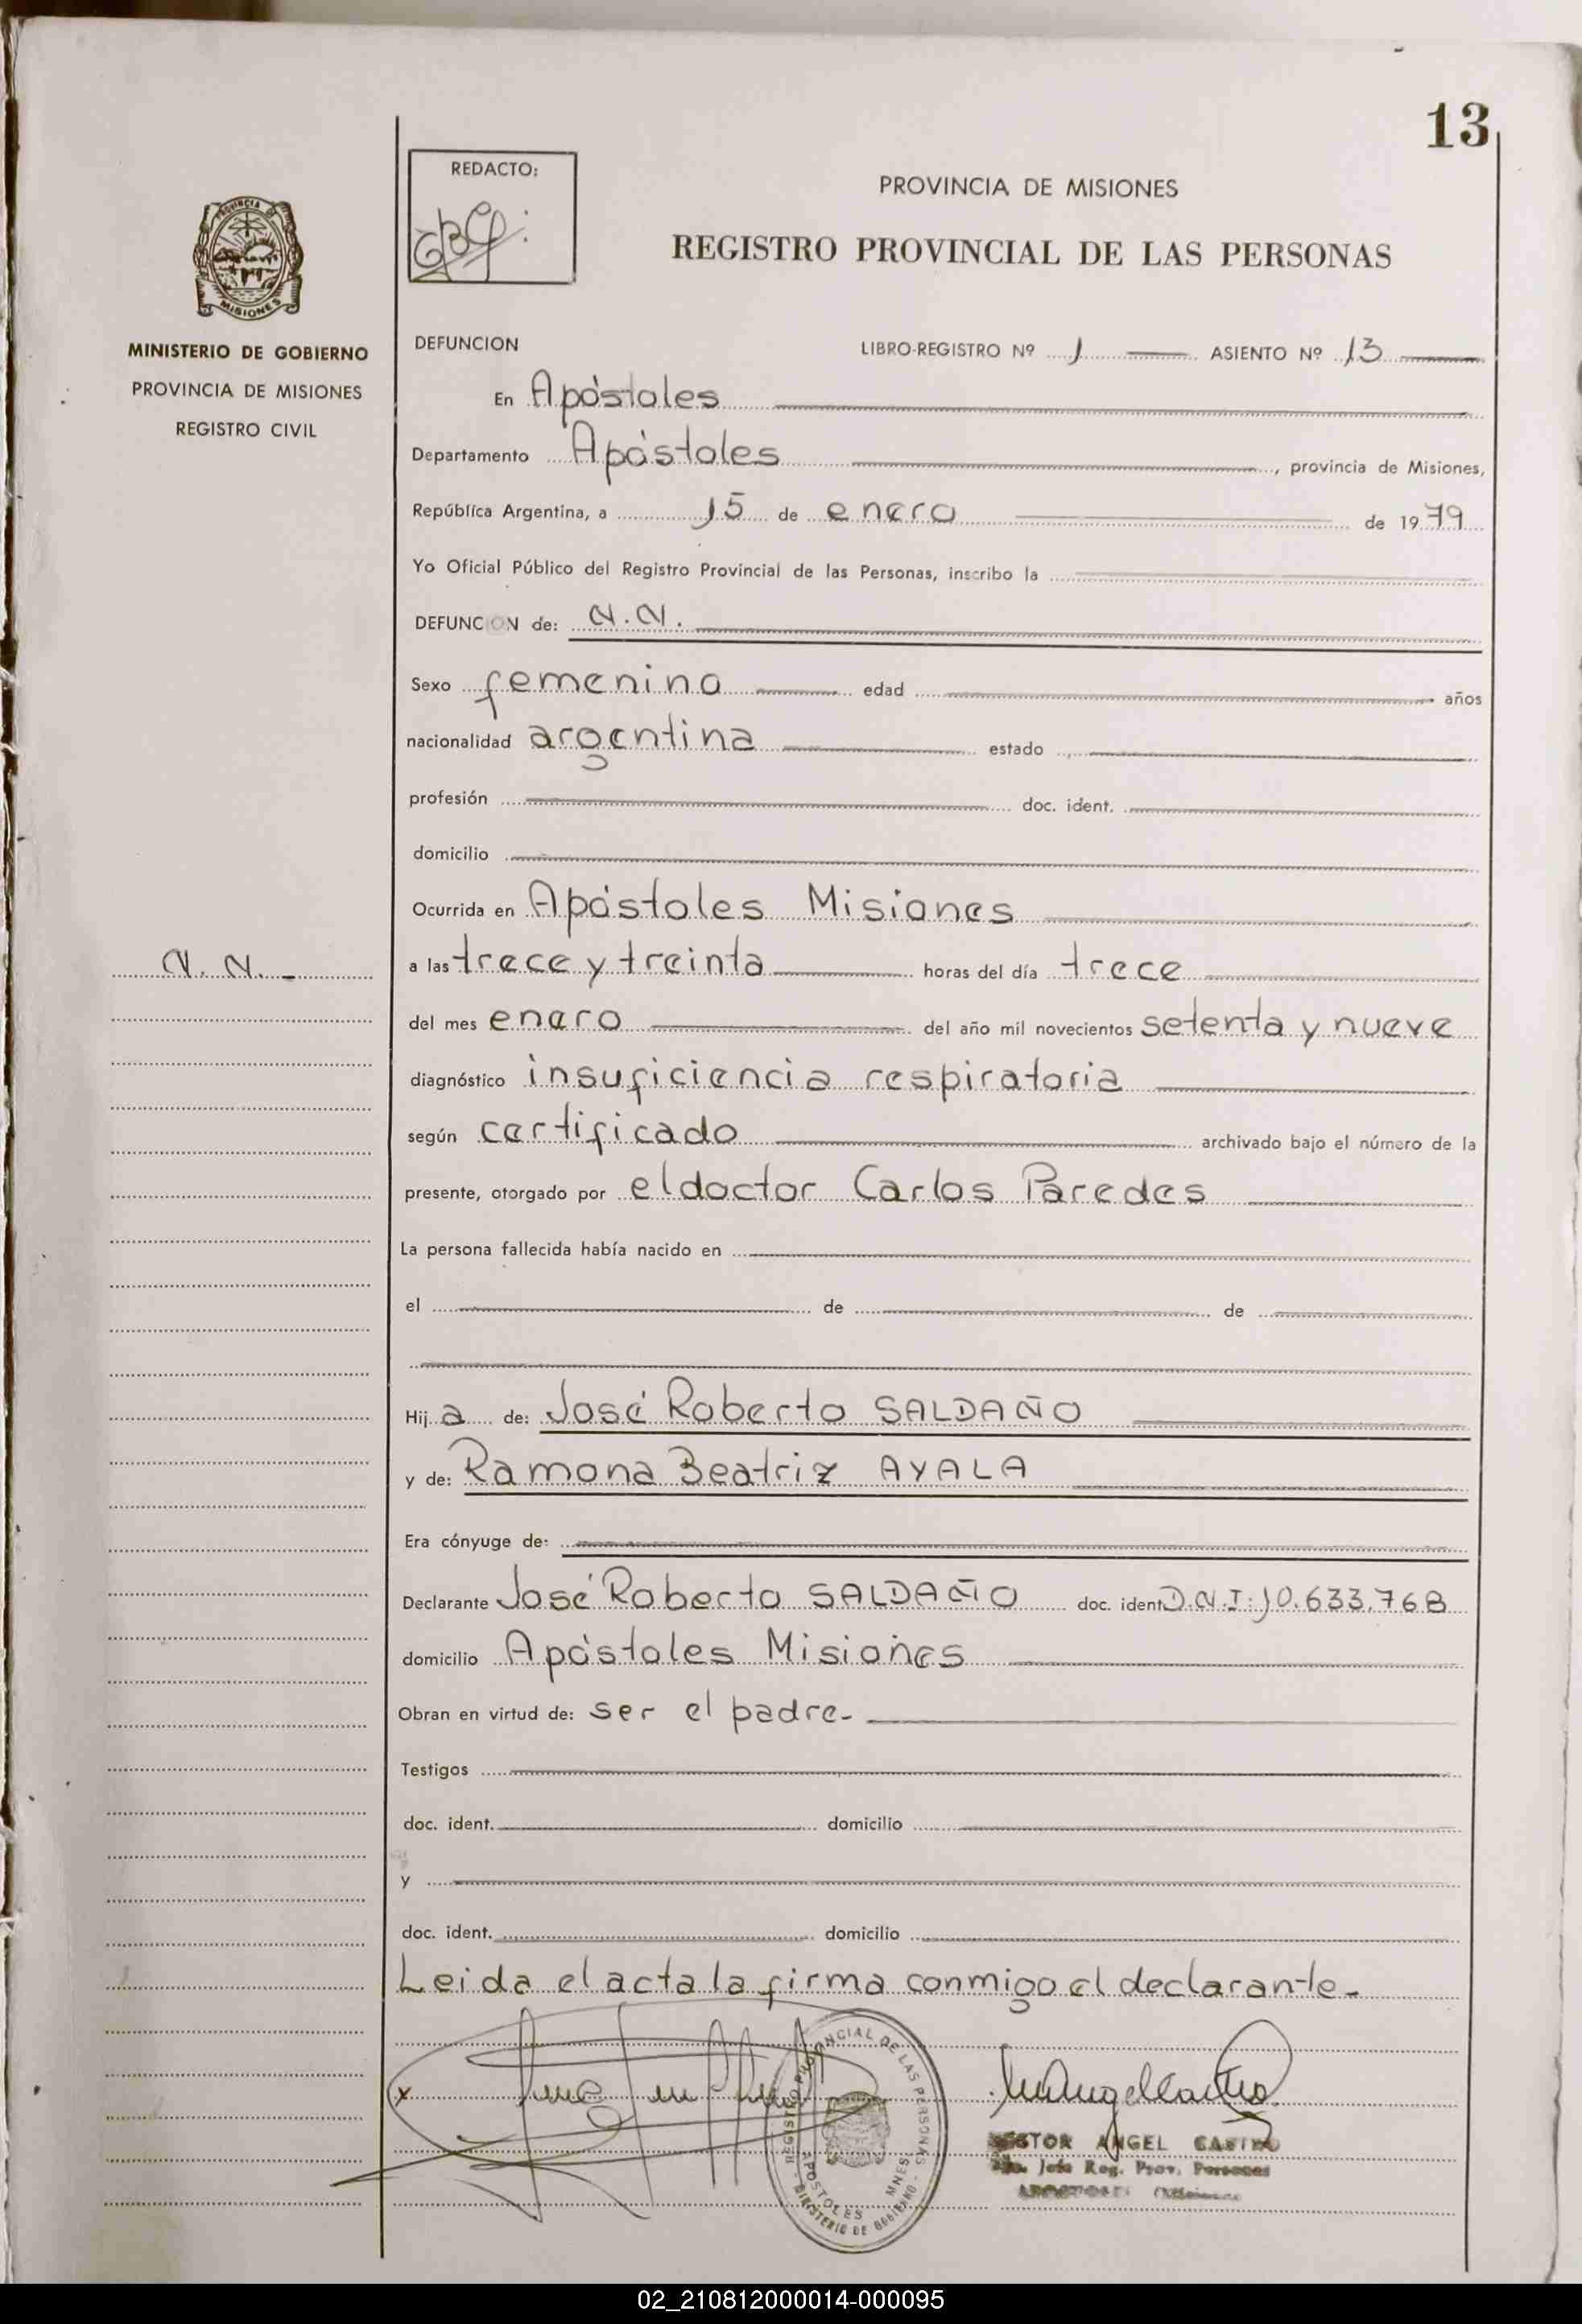 13
REDACTO:
PROVINCIA DE MISIONES
REGISTRO PROVINCIAL DE LAS PERSONAS
PROVINCIA DE
MISIONES
MINISTERIO DE GOBIERNO
PROVINCIA DE MISIONES
REGISTRO CIVIL
DEFUNCION LIBRO-REGISTRO Nº 1 ASIENTO Nº 13
En Apóstoles
Departamento Apóstoles, provincia de Misiones,
República Argentina, a 15 de enero de 1979
Yo Oficial Público del Registro Provincial de las Personas, inscribo la
DEFUNCION de: N.N.
Sexo femenino edad años
nacionalidad argentina estado
profesión doc. ident.
domicilio
Ocurrida en Apóstoles Misiones
N. N. -
a las trece y treinta horas del día trece
del mes enero del año mil novecientos setenta y nueve
diagnóstico insuficiencia respiratoria
según certificado archivado bajo el número de la
presente, otorgado por el doctor Carlos Paredes
La persona fallecida había nacido en
el de de
Hij a de: José Roberto SALDAÑO
y de: Ramona Beatriz AYALA
Era cónyuge de:
Declarante José Roberto SALDAÑO doc. ident D.N.I: 10.633.768
domicilio Apóstoles Misiones
Obran en virtud de: ser el padre-
Testigos
doc. ident. domicilio
y
doc. ident. domicilio
Leida el acta la firma conmigo el declarante-
x
REGISTRO PROVINCIAL DE LAS PERSONAS
APOSTOLES MNES
MINISTERIO DE GOBIERNO
ANGEL CASTRO
Jefe Reg. Prov. Personas
02_210812000014-000095